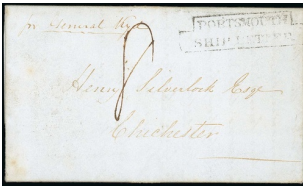 pr General Kyd
PORTSMOUTH
SHIP LETTER
8
Henry Silverlock Esqr
Chichester